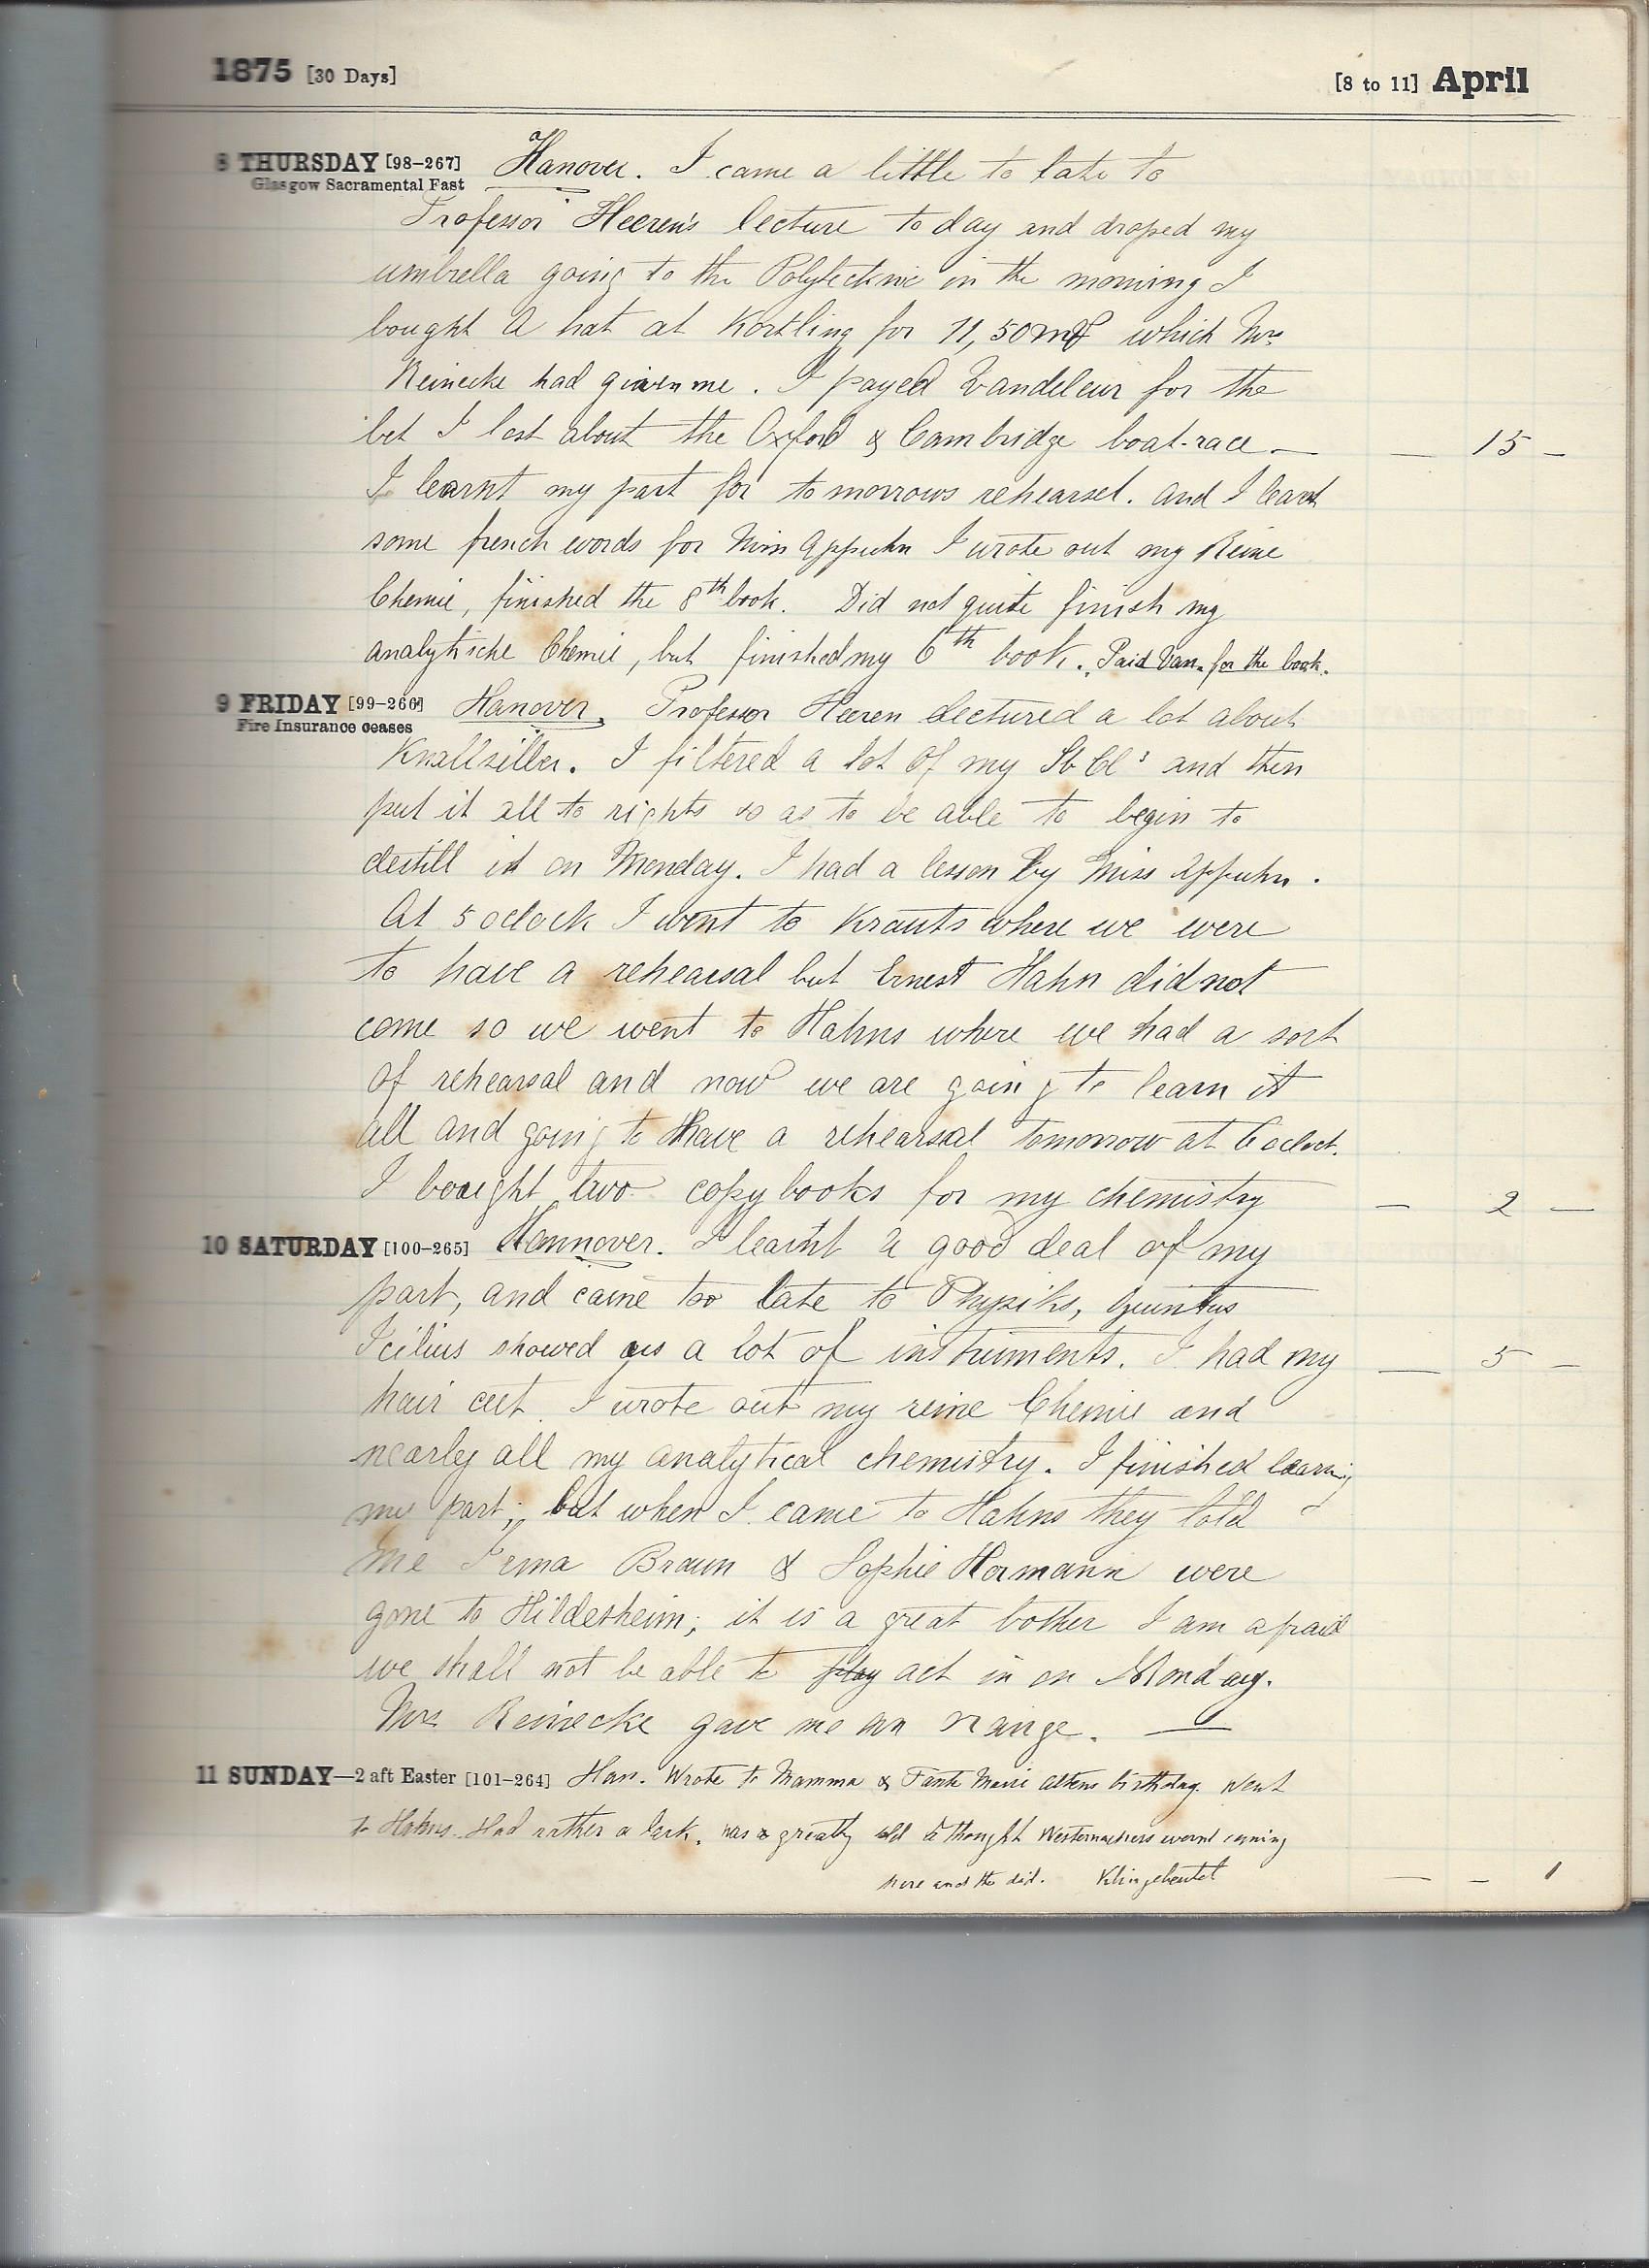 1875 [30 Days] [8 to 11] April
8 THURSDAY [98-267] Hanover. I came a little to late to
Glasgow Sacramental Fast
Professor Heeren's lecture to day and droped my
umbrella going to the Polytecknic in the morning I
bought a hat at Körtling for 11,50 which Mrs
Reinecke had given me. I payed Vandeleur for the
bet I lost about the Oxford & Cambridge boat-race — — 15 —
I learnt my part for tomorrows rehearsel. And I learnt
some french words for Miss Appuhn I wrote out my Reine
Chemie, finished the 8th book. Did not quite finish my
analytische Chemie, but finished my 6th book. Paid Van. for the book.
9 FRIDAY [99-266] Hanover. Professor Heeren lectured a lot about
Fire Insurance ceases
Knallsilber. I filtered a lot of my Sb Cl³ and then
put it all to rights so as to be able to begin to
destill it on Monday. I had a lesson by Miss Appuhn.
At 5 oclock I went to Krauts where we were
to have a rehearsal but Ernest Hahn did not
come so we went to Hahns where we had a sort
of rehearsal and now we are going to learn it
all and going to have a rehearsal tomorrow at 6 oclock.
I bought two copy books for my chemistry — 2 —
10 SATURDAY [100-265] Hannover. I learnt a good deal of my
part, and came too late to Physiks, Quintus
Icilius showed us a lot of instruments. I had my — 5 —
hair cut. I wrote out my reine Chemie and
nearly all my analytical chemistry. I finished learning
my part; but when I came to Hahns they told
me Irma Braun & Sophie Hormann were
gone to Hildesheim; it is a great bother I am afraid
we shall not be able to play act in on Monday.
Mrs Reinecke gave me an orange. —
11 SUNDAY—2 aft Easter [101-264] Han. Wrote to Mamma & Tante Marie Altens birthday. Went
to Hahns. Had rather a lark. was greatly sold thought Westernachers wernt coming
here and the did. Klingebeutel — - 1